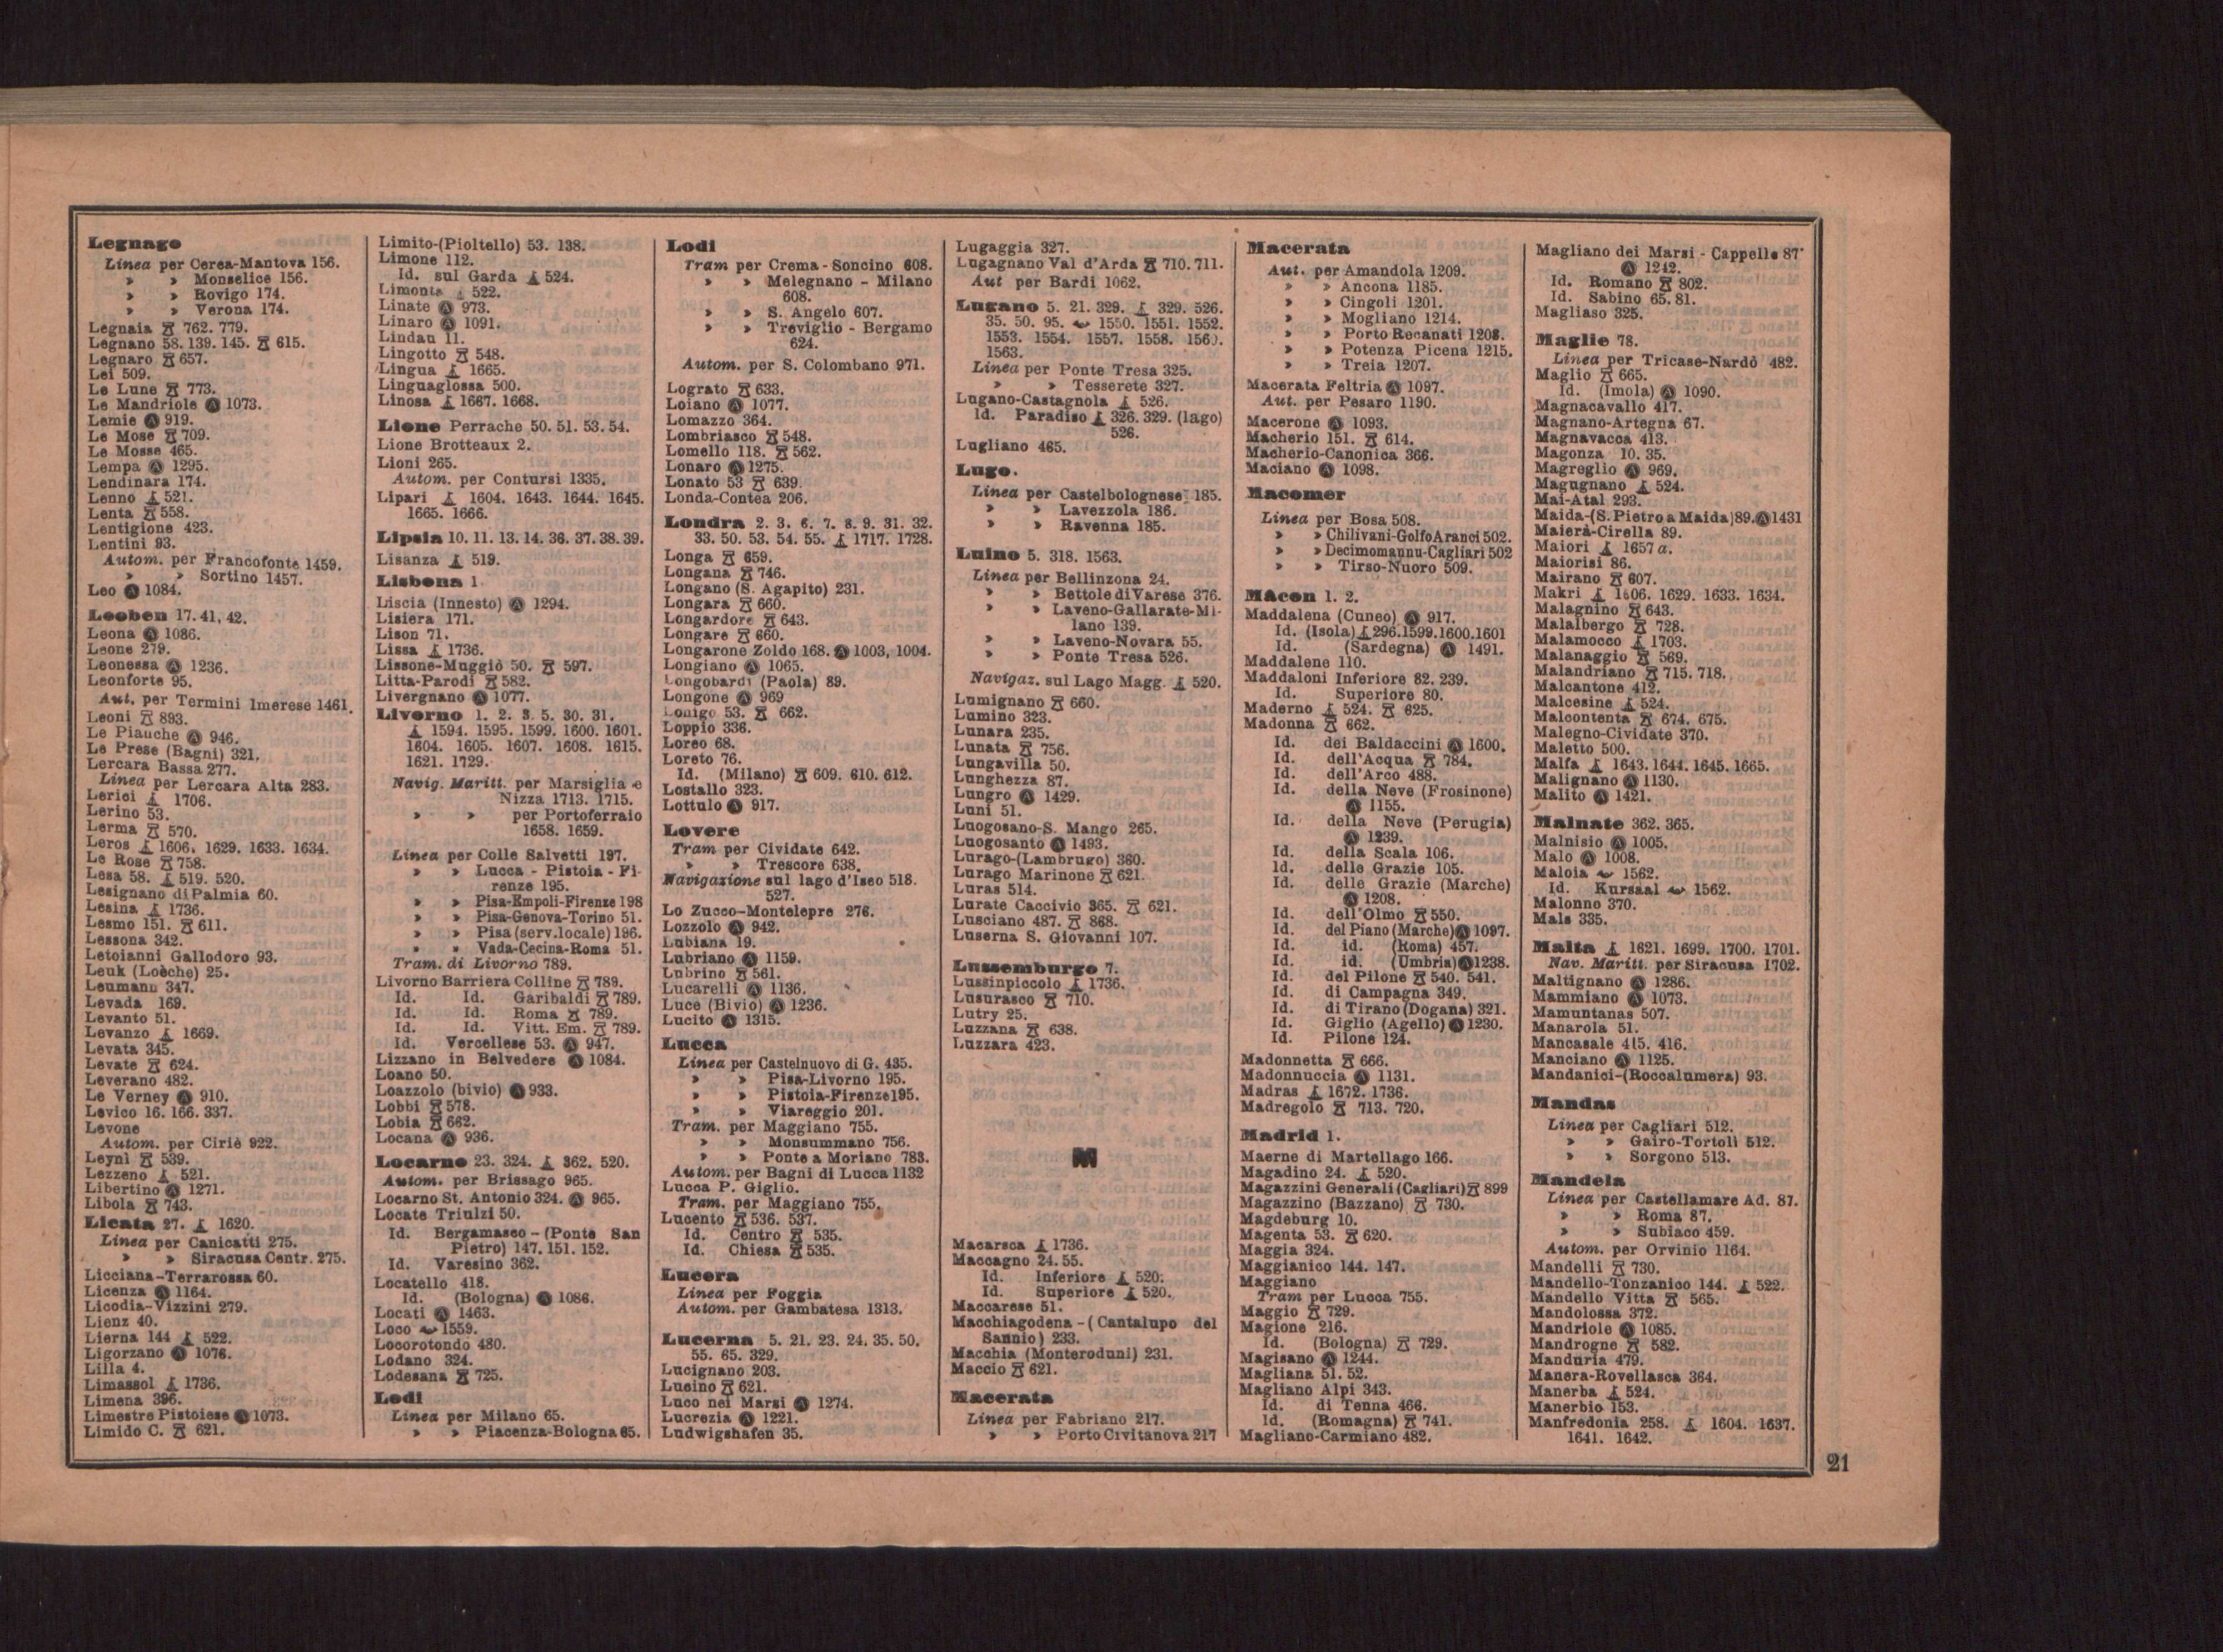 Legnago
Linea per Cerea-Mantova 156.
» » Monselice 156.
» » Rovigo 174.
» » Verona 174.
Legnaia 762. 779.
Legnano 58. 139. 145. 615.
Legnaro 657.
Lei 509.
Le Lune 773.
Le Mandriole Ⓐ 1073.
Lemie Ⓐ 919.
Le Mose 709.
Le Mosse 465.
Lempa Ⓐ 1295.
Lendinara 174.
Lenno 521.
Lenta 558.
Lentigione 423.
Lentini 93.
Autom. per Francofonte 1459.
» » Sortino 1457.
Leo Ⓐ 1084.
Leoben 17. 41, 42.
Leona Ⓐ 1086.
Leone 279.
Leonessa Ⓐ 1236.
Leonforte 95.
Aut. per Termini Imerese 1461.
Leoni 893.
Le Piauche Ⓐ 946.
Le Prese (Bagni) 321.
Lercara Bassa 277.
Linea per Lercara Alta 283.
Lerici 1706.
Lerino 53.
Lerma 570.
Leros 1606. 1629. 1633. 1634.
Le Rose 758.
Lesa 58. 519. 520.
Lesignano di Palmia 60.
Lesina 1736.
Lesmo 151. 611.
Lessona 342.
Letoianni Gallodoro 93.
Leuk (Loèche) 25.
Leumann 347.
Levada 169.
Levanto 51.
Levanzo 1669.
Levata 345.
Levate 624.
Leverano 482.
Le Verney Ⓐ 910.
Levico 16. 166. 337.
Levone
Autom. per Ciriè 922.
Leynì 539.
Lezzeno 521.
Libertino Ⓐ 1271.
Libola 743.
Licata 27. 1620.
Linea per Canicatti 275.
» » Siracusa Centr. 275.
Licciana-Terrarossa 60.
Licenza Ⓐ 1164.
Licodia-Vizzini 279.
Lienz 40.
Lierna 144 522.
Ligorzano Ⓐ 1076.
Lilla 4.
Limassol 1736.
Limena 396.
Limestre Pistoiese Ⓐ 1073.
Limido C. 621.
Limito-(Pioltello) 53. 138.
Limone 112.
Id. sul Garda 524.
Limonta 522.
Linate Ⓐ 973.
Linaro Ⓐ 1091.
Lindau 11.
Lingotto 548.
Lingua 1665.
Linguaglossa 500.
Linosa 1667. 1668.
Lione Perrache 50. 51. 53. 54.
Lione Brotteaux 2.
Lioni 265.
Autom. per Contursi 1335.
Lipari 1604. 1643. 1644. 1645.
1665. 1666.
Lipsia 10. 11. 13. 14. 36. 37. 38. 39.
Lisanza 519.
Lisbona 1
Liscia (Innesto) Ⓐ 1294.
Lisiera 171.
Lison 71.
Lissa 1736.
Lissone-Muggiò 50. 597.
Litta-Parodi 582.
Livergnano Ⓐ 1077.
Livorno 1. 2. 3. 5. 30. 31.
1594. 1595. 1599. 1600. 1601.
1604. 1605. 1607. 1608. 1615.
1621. 1729.
Navig. Maritt. per Marsiglia e
Nizza 1713. 1715.
» » per Portoferraio
1658. 1659.
Linea per Colle Salvetti 197.
» » Lucca - Pistoia - Fi-
renze 195.
» » Pisa-Empoli-Firenze 198
» » Pisa-Genova-Torino 51.
» » Pisa (serv. locale) 196.
» » Vada-Cecina-Roma 51.
Tram. di Livorno 789.
Livorno Barriera Colline 789.
Id. Id. Garibaldi 789.
Id. Id. Roma 789.
Id. Id. Vitt. Em. 789.
Id. Vercellese 53. Ⓐ 947.
Lizzano in Belvedere Ⓐ 1084.
Loano 50.
Loazzolo (bivio) Ⓐ 933.
Lobbi 578.
Lobia 662.
Locana Ⓐ 936.
Locarno 23. 324. 362. 520.
Autom. per Brissago 965.
Locarno St. Antonio 324. Ⓐ 965.
Locate Triulzi 50.
Id. Bergamasco - (Ponte San
Pietro) 147. 151. 152.
Id. Varesino 362.
Locatello 418.
Id. (Bologna) Ⓐ 1086.
Locati Ⓐ 1463.
Loco 1559.
Locorotondo 480.
Lodano 324.
Lodesana 725.
Lodi
Linea per Milano 65.
» » Piacenza-Bologna 65.
Lodi
Tram per Crema - Soncino 608.
» » Melegnano - Milano
608.
» » S. Angelo 607.
» » Treviglio - Bergamo
624.
Autom. per S. Colombano 971.
Lograto 633.
Loiano Ⓐ 1077.
Lomazzo 364.
Lombriasco 548.
Lomello 118. 562.
Lonaro Ⓐ 1275.
Lonato 53 639.
Londa-Contea 206.
Londra 2. 3. 6. 7. 8. 9. 31. 32.
33. 50. 53. 54. 55. 1717. 1728.
Longa 659.
Longana 746.
Longano (S. Agapito) 231.
Longara 660.
Longardore 643.
Longare 660.
Longarone Zoldo 168. Ⓐ 1003, 1004.
Longiano Ⓐ 1065.
Longobardi (Paola) 89.
Longone Ⓐ 969
Lonigo 53. 662.
Loppio 336.
Loreo 68.
Loreto 76.
Id. (Milano) 609. 610. 612.
Lostallo 323.
Lottulo Ⓐ 917.
Lovere
Tram per Cividate 642.
» » Trescore 638.
Navigazione sul lago d'Iseo 518.
527.
Lo Zucco-Montelepre 276.
Lozzolo Ⓐ 942.
Lubiana 19.
Lubriano Ⓐ 1159.
Lubrino 561.
Lucarelli Ⓐ 1136.
Luce (Bivio) Ⓐ 1236.
Lucito Ⓐ 1315.
Lucca
Linea per Castelnuovo di G. 435.
» » Pisa-Livorno 195.
» » Pistoia-Firenze 195.
» » Viareggio 201.
Tram. per Maggiano 755.
» » Monsummano 756.
» » Ponte a Moriano 783.
Autom. per Bagni di Lucca 1132
Lucca P. Giglio.
Tram. per Maggiano 755.
Lucento 536. 537.
Id. Centro 535.
Id. Chiesa 535.
Lucera
Linea per Foggia
Autom. per Gambatesa 1313.
Lucerna 5. 21. 23. 24. 35. 50.
55. 65. 329.
Lucignano 203.
Lucino 621.
Luco nei Marsi Ⓐ 1274.
Lucrezia Ⓐ 1221.
Ludwigshafen 35.
Lugaggia 327.
Lugagnano Val d'Arda 710. 711.
Aut per Bardi 1062.
Lugano 5. 21. 329. 329. 526.
35. 50. 95. 1550. 1551. 1552.
1553. 1554. 1557. 1558. 1560.
1563.
Linea per Ponte Tresa 325.
» » Tesserete 327.
Lugano-Castagnola 526.
Id. Paradiso 326. 329. (lago)
526.
Lugliano 465.
Lugo.
Linea per Castelbolognese 185.
» » Lavezzola 186.
» » Ravenna 185.
Luino 5. 318. 1563.
Linea per Bellinzona 24.
» » Bettole di Varese 376.
» » Laveno-Gallarate-Mi-
lano 139.
» » Laveno-Novara 55.
» » Ponte Tresa 526.
Navigaz. sul Lago Magg. 520.
Lumignano 660.
Lumino 323.
Lunara 235.
Lunata 756.
Lungavilla 50.
Lunghezza 87.
Lungro Ⓐ 1429.
Luni 51.
Luogosano-S. Mango 265.
Luogosanto Ⓐ 1493.
Lurago-(Lambrugo) 360.
Lurago Marinone 621.
Luras 514.
Lurate Caccivio 365. 621.
Lusciano 487. 868.
Luserna S. Giovanni 107.
Lussemburgo 7.
Lussinpiccolo 1736.
Lusurasco 710.
Lutry 25.
Luzzana 638.
Luzzara 423.
M
Macarsca 1736.
Maccagno 24. 55.
Id. Inferiore 520.
Id. Superiore 520.
Maccarese 51.
Macchiagodena - (Cantalupo del
Sannio) 233.
Macchia (Monteroduni) 231.
Maccio 621.
Macerata
Linea per Fabriano 217.
» » Porto Civitanova 217
Macerata
Aut. per Amandola 1209.
» » Ancona 1185.
» » Cingoli 1201.
» » Mogliano 1214.
» » Porto Recanati 1208.
» » Potenza Picena 1215.
» » Treia 1207.
Macerata Feltria Ⓐ 1097.
Aut. per Pesaro 1190.
Macerone Ⓐ 1093.
Macherio 151. 614.
Macherio-Canonica 366.
Maciano Ⓐ 1098.
Macomer
Linea per Bosa 508.
» » Chilivani-Golfo Aranci 502.
» » Decimomannu-Cagliari 502
» » Tirso-Nuoro 509.
Mâcon 1. 2.
Maddalena (Cuneo) Ⓐ 917.
Id. (Isola) 296. 1599. 1600. 1601
Id. (Sardegna) Ⓐ 1491.
Maddalene 110.
Maddaloni Inferiore 82. 239.
Id. Superiore 80.
Maderno 524. 625.
Madonna 662.
Id. dei Baldaccini Ⓐ 1600.
Id. dell'Acqua 784.
Id. dell'Arco 488.
Id. della Neve (Frosinone)
Ⓐ 1155.
Id. della Neve (Perugia)
Ⓐ 1239.
Id. della Scala 106.
Id. delle Grazie 105.
Id. delle Grazie (Marche)
Ⓐ 1208.
Id. dell'Olmo 550.
Id. del Piano (Marche) Ⓐ 1097.
Id. id. (Roma) 457.
Id. id. (Umbria) Ⓐ 1238.
Id. del Pilone 540. 541.
Id. di Campagna 349.
Id. di Tirano (Dogana) 321.
Id. Giglio (Agello) Ⓐ 1230.
Id. Pilone 124.
Madonnetta 666.
Madonnuccia Ⓐ 1131.
Madras 1672. 1736.
Madregolo 713. 720.
Madrid 1.
Maerne di Martellago 166.
Magadino 24. 520.
Magazzini Generali (Cagliari) 899
Magazzino (Bazzano) 730.
Magdeburg 10.
Magenta 53. 620.
Maggia 324.
Maggianico 144. 147.
Maggiano
Tram per Lucca 755.
Maggio 729.
Magione 216.
Id. (Bologna) 729.
Magisano Ⓐ 1244.
Magliana 51. 52.
Magliano Alpi 343.
Id. di Tenna 466.
Id. (Romagna) 741.
Magliano-Carmiano 482.
Magliano dei Marsi - Cappelle 87
Ⓐ 1242.
Id. Romano 802.
Id. Sabino 65. 81.
Magliaso 325.
Maglie 78.
Linea per Tricase-Nardò 482.
Maglio 665.
Id. (Imola) Ⓐ 1090.
Magnacavallo 417.
Magnano-Artegna 67.
Magnavacca 413.
Magonza 10. 35.
Magreglio Ⓐ 969.
Magugnano 524.
Mai-Atal 293.
Maida-(S. Pietro a Maida) 89. Ⓐ 1431
Maierà-Cirella 89.
Maiori 1657 a.
Maiorisi 86.
Mairano 607.
Makri 1606. 1629. 1633. 1634.
Malagnino 643.
Malalbergo 728.
Malamocco 1703.
Malanaggio 569.
Malandriano 715. 718.
Malcantone 412.
Malcesine 524.
Malcontenta 674. 675.
Malegno-Cividate 370.
Maletto 500.
Malfa 1643. 1644. 1645. 1665.
Malignano Ⓐ 1130.
Malito Ⓐ 1421.
Malnate 362. 365.
Malnisio Ⓐ 1005.
Malo Ⓐ 1008.
Maloia 1562.
Id. Kursaal 1562.
Malonno 370.
Mals 335.
Malta 1621. 1699. 1700. 1701.
Nav. Maritt. per Siracusa 1702.
Maltignano Ⓐ 1286.
Mammiano Ⓐ 1073.
Mamuntanas 507.
Manarola 51.
Mancasale 415. 416.
Manciano Ⓐ 1125.
Mandanici-(Roccalumera) 93.
Mandas
Linea per Cagliari 512.
» » Gairo-Tortolì 512.
» » Sorgono 513.
Mandela
Linea per Castellamare Ad. 87.
» » Roma 87.
» » Subiaco 459.
Autom. per Orvinio 1164.
Mandelli 730.
Mandello-Tonzanico 144. 522.
Mandello Vitta 565.
Mandolossa 372.
Mandriole Ⓐ 1085.
Mandrogne 582.
Manduria 479.
Manera-Rovellasca 364.
Manerba 524.
Manerbio 153.
Manfredonia 258. 1604. 1637.
1641. 1642.
21